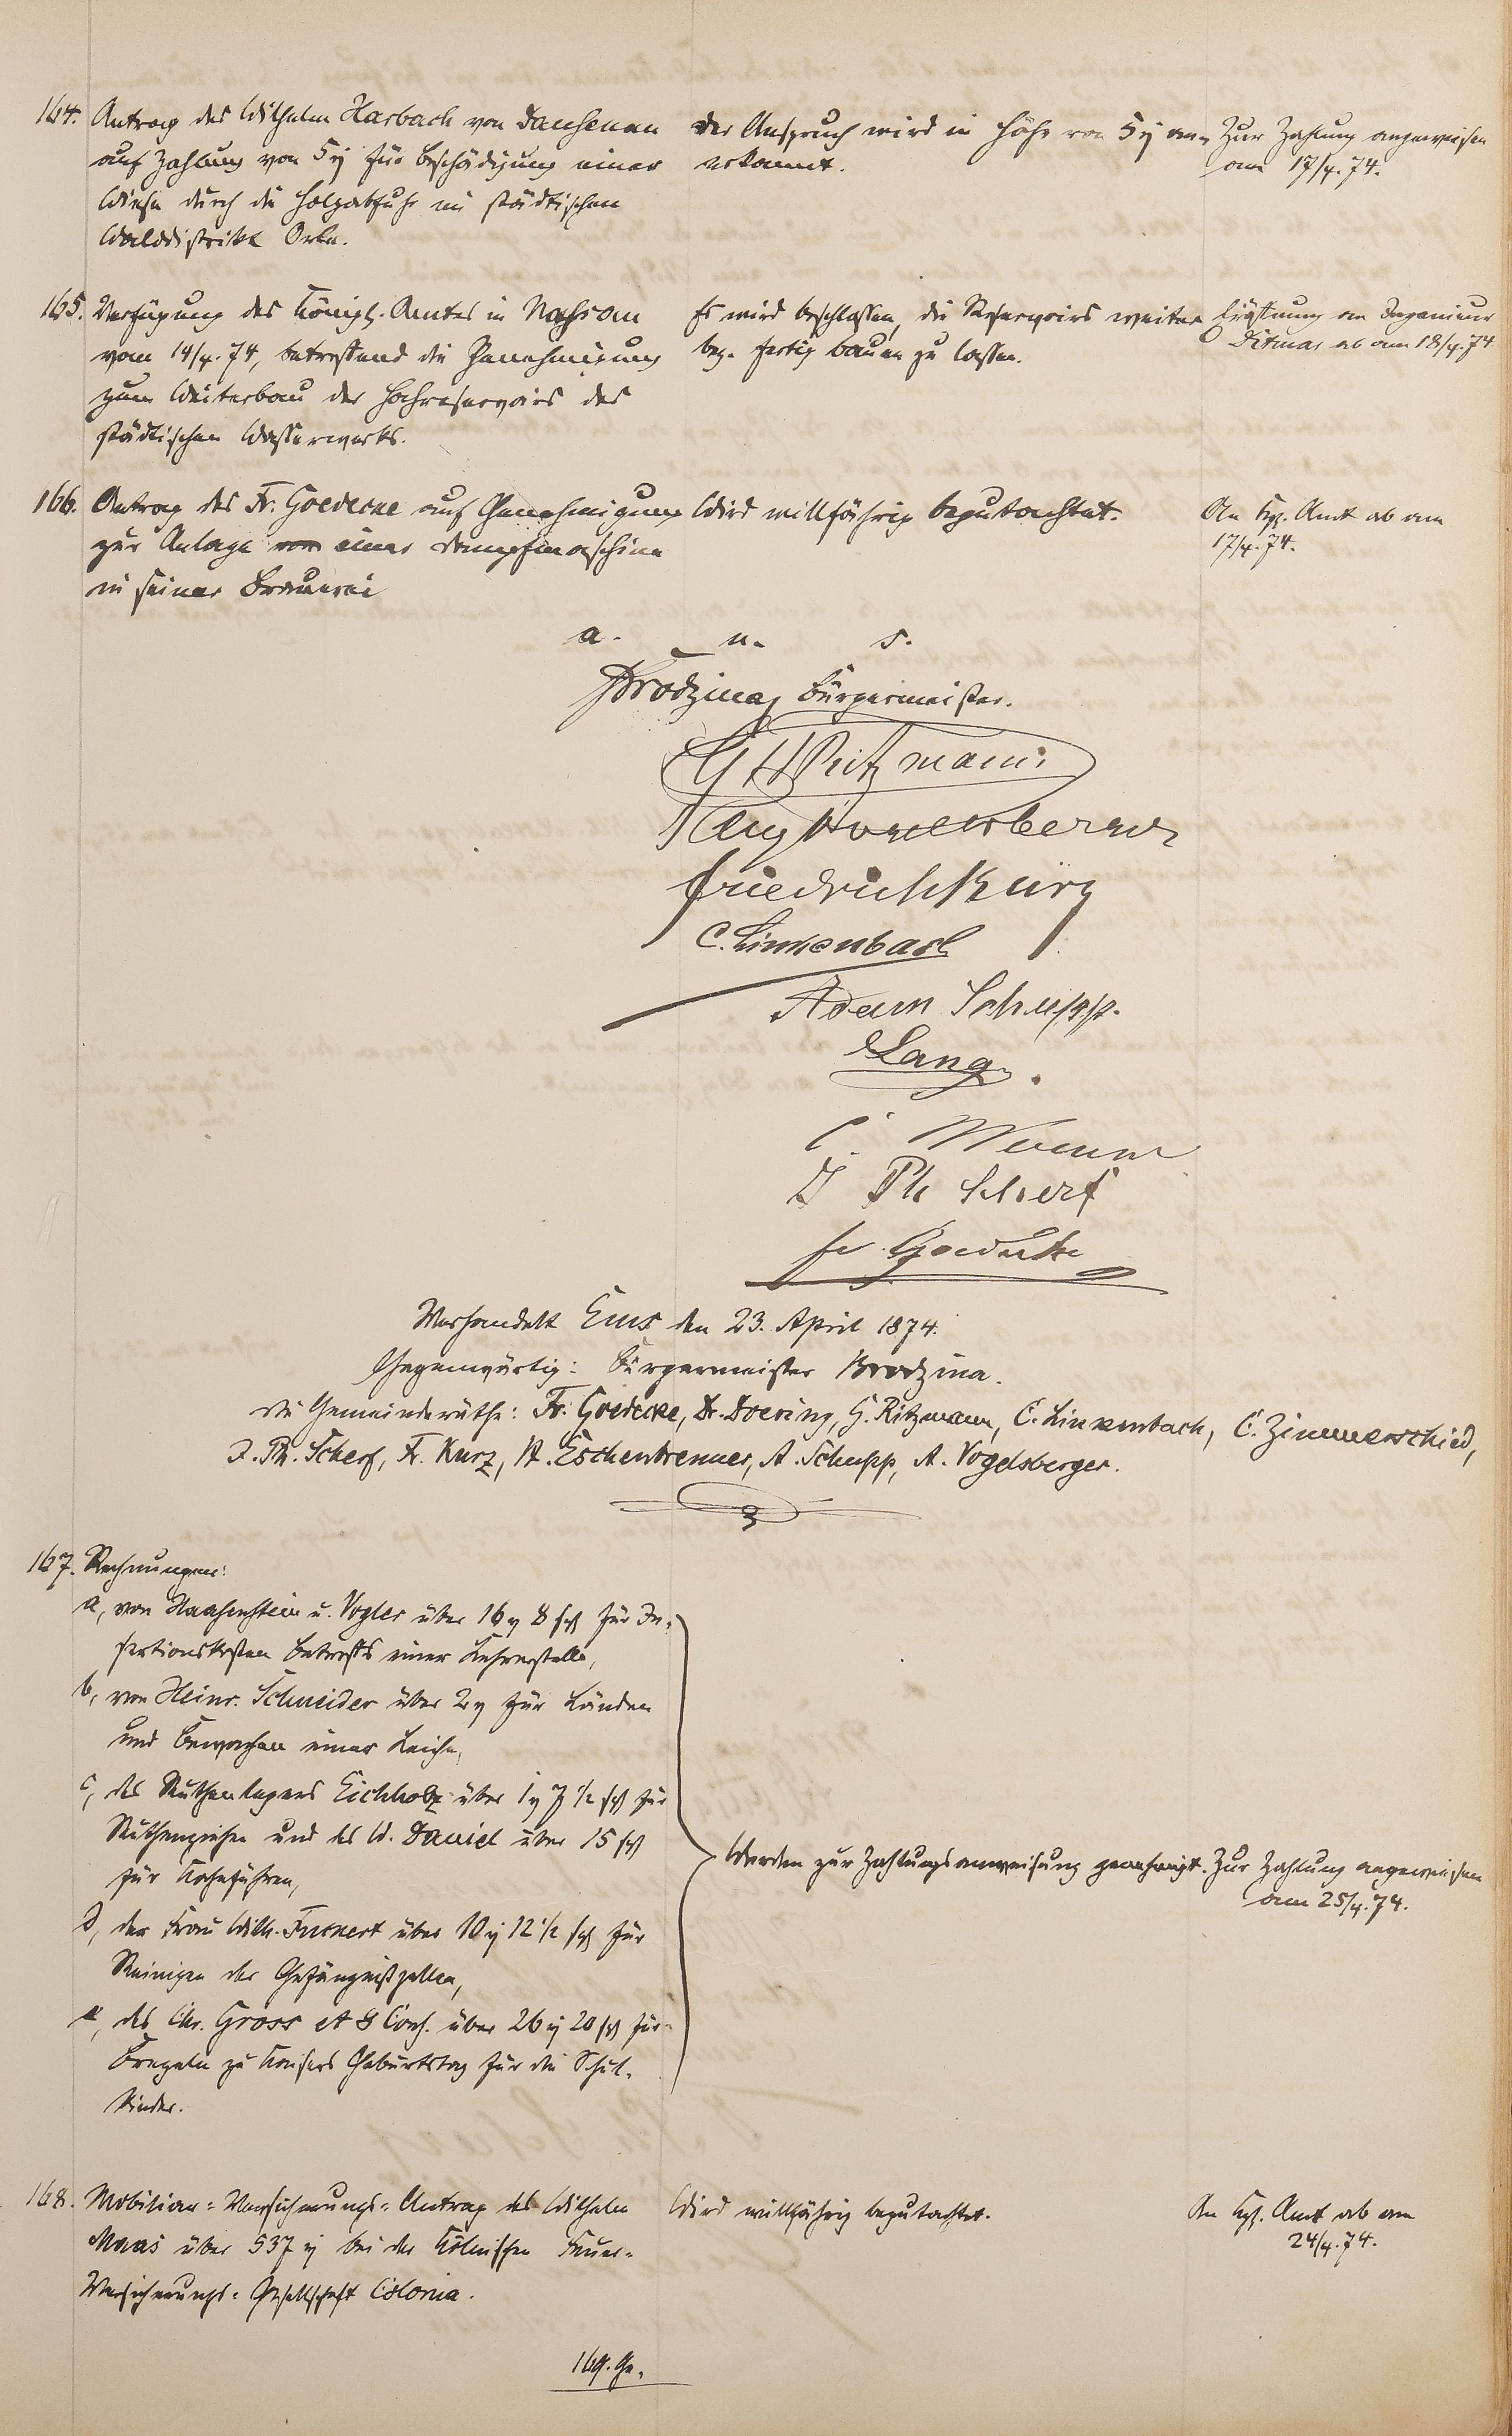 164. Antrag des Wilhelm Harbach von Dausenau
auf Zahlung von 5 für Beschädigung einer
Wiese durch die Holzabfuhr im städtischen
Walddistrikt
Der Anspruch wird in Höhe von 5 an-
erkannt.
Zur Zahlung angewiesen
am 17/4.74.
165. Verfügung des Königl. Amtes in Nassau
vom 14/4.74, betreffend die Genehmigung
zum Weiterbau der Hochreservoirs des
städtischen Wasserwerks.
Es wird beschlossen, die Reservoirs weiter
bez. fertig bauen zu lassen.
Eröffnung an Ingenieur
Ditmar ab am 18/4.74
166. Antrag des Fr. Goedecke auf Genehmigung
zur Anlage einer Dampfmaschine
in seiner Brauerei
Wird willfährig begutachtet.
An Kgl. Amt ab am
17/4.74.
a. u. s.
Brodzina, Bürgermeister.
G H Ritzmann
Aug Vogelsberger
Friedrich Kurz
C. Linkenbach
Adam Schupp.
Lang.
C.
J Ph Scherf
Fr. Goedecke
Verhandelt Ems den 23. April 1874.
Gegenwärtig: Bürgermeister Brodzina.
Die Gemeinderäthe: Fr. Goedecke, Dr. Doering, G. Ritzmann, C. Linkenbach, C. Zimmerschied,
J. Ph. Scherf, Fr. Kurz, A. Eschenbrenner, A. Schupp, A. Vogelsberger.
167. Rechnungen:
a, von Haasenstein u. Vogler über 16 8 für In-
sertionskosten betreffs einer Lehrerstelle,
b, von Heinr. Schneider über 2 für Länden
und Bewachen einer Leiche,
c, des Ruthenlegers Eichholz über 1 7 1/2 für
Ruthenziehen und des W. Daniel über 15
für
d, der Frau Wilh. über 10 12 1/2 für
Reinigen der Gefängnißzellen,
e, des Chr. Gross et Cons. über 26 20 für
Brezeln zu Kaisers Geburtstag für die Schul-
kinder.
Werden zur Zahlungsanweisung genehmigt.
Zur Zahlung angewiesen
am 25/4.74.
168. Mobiliar-Versicherungs-Antrag des Wilhelm
Maas über 537 bei der Kölnischen Feuer-
Versicherungs-Gesellschaft Colonia.
Wird willfährig begutachtet.
An Kgl. Amt ab am
24/4.74.
169. Ge.